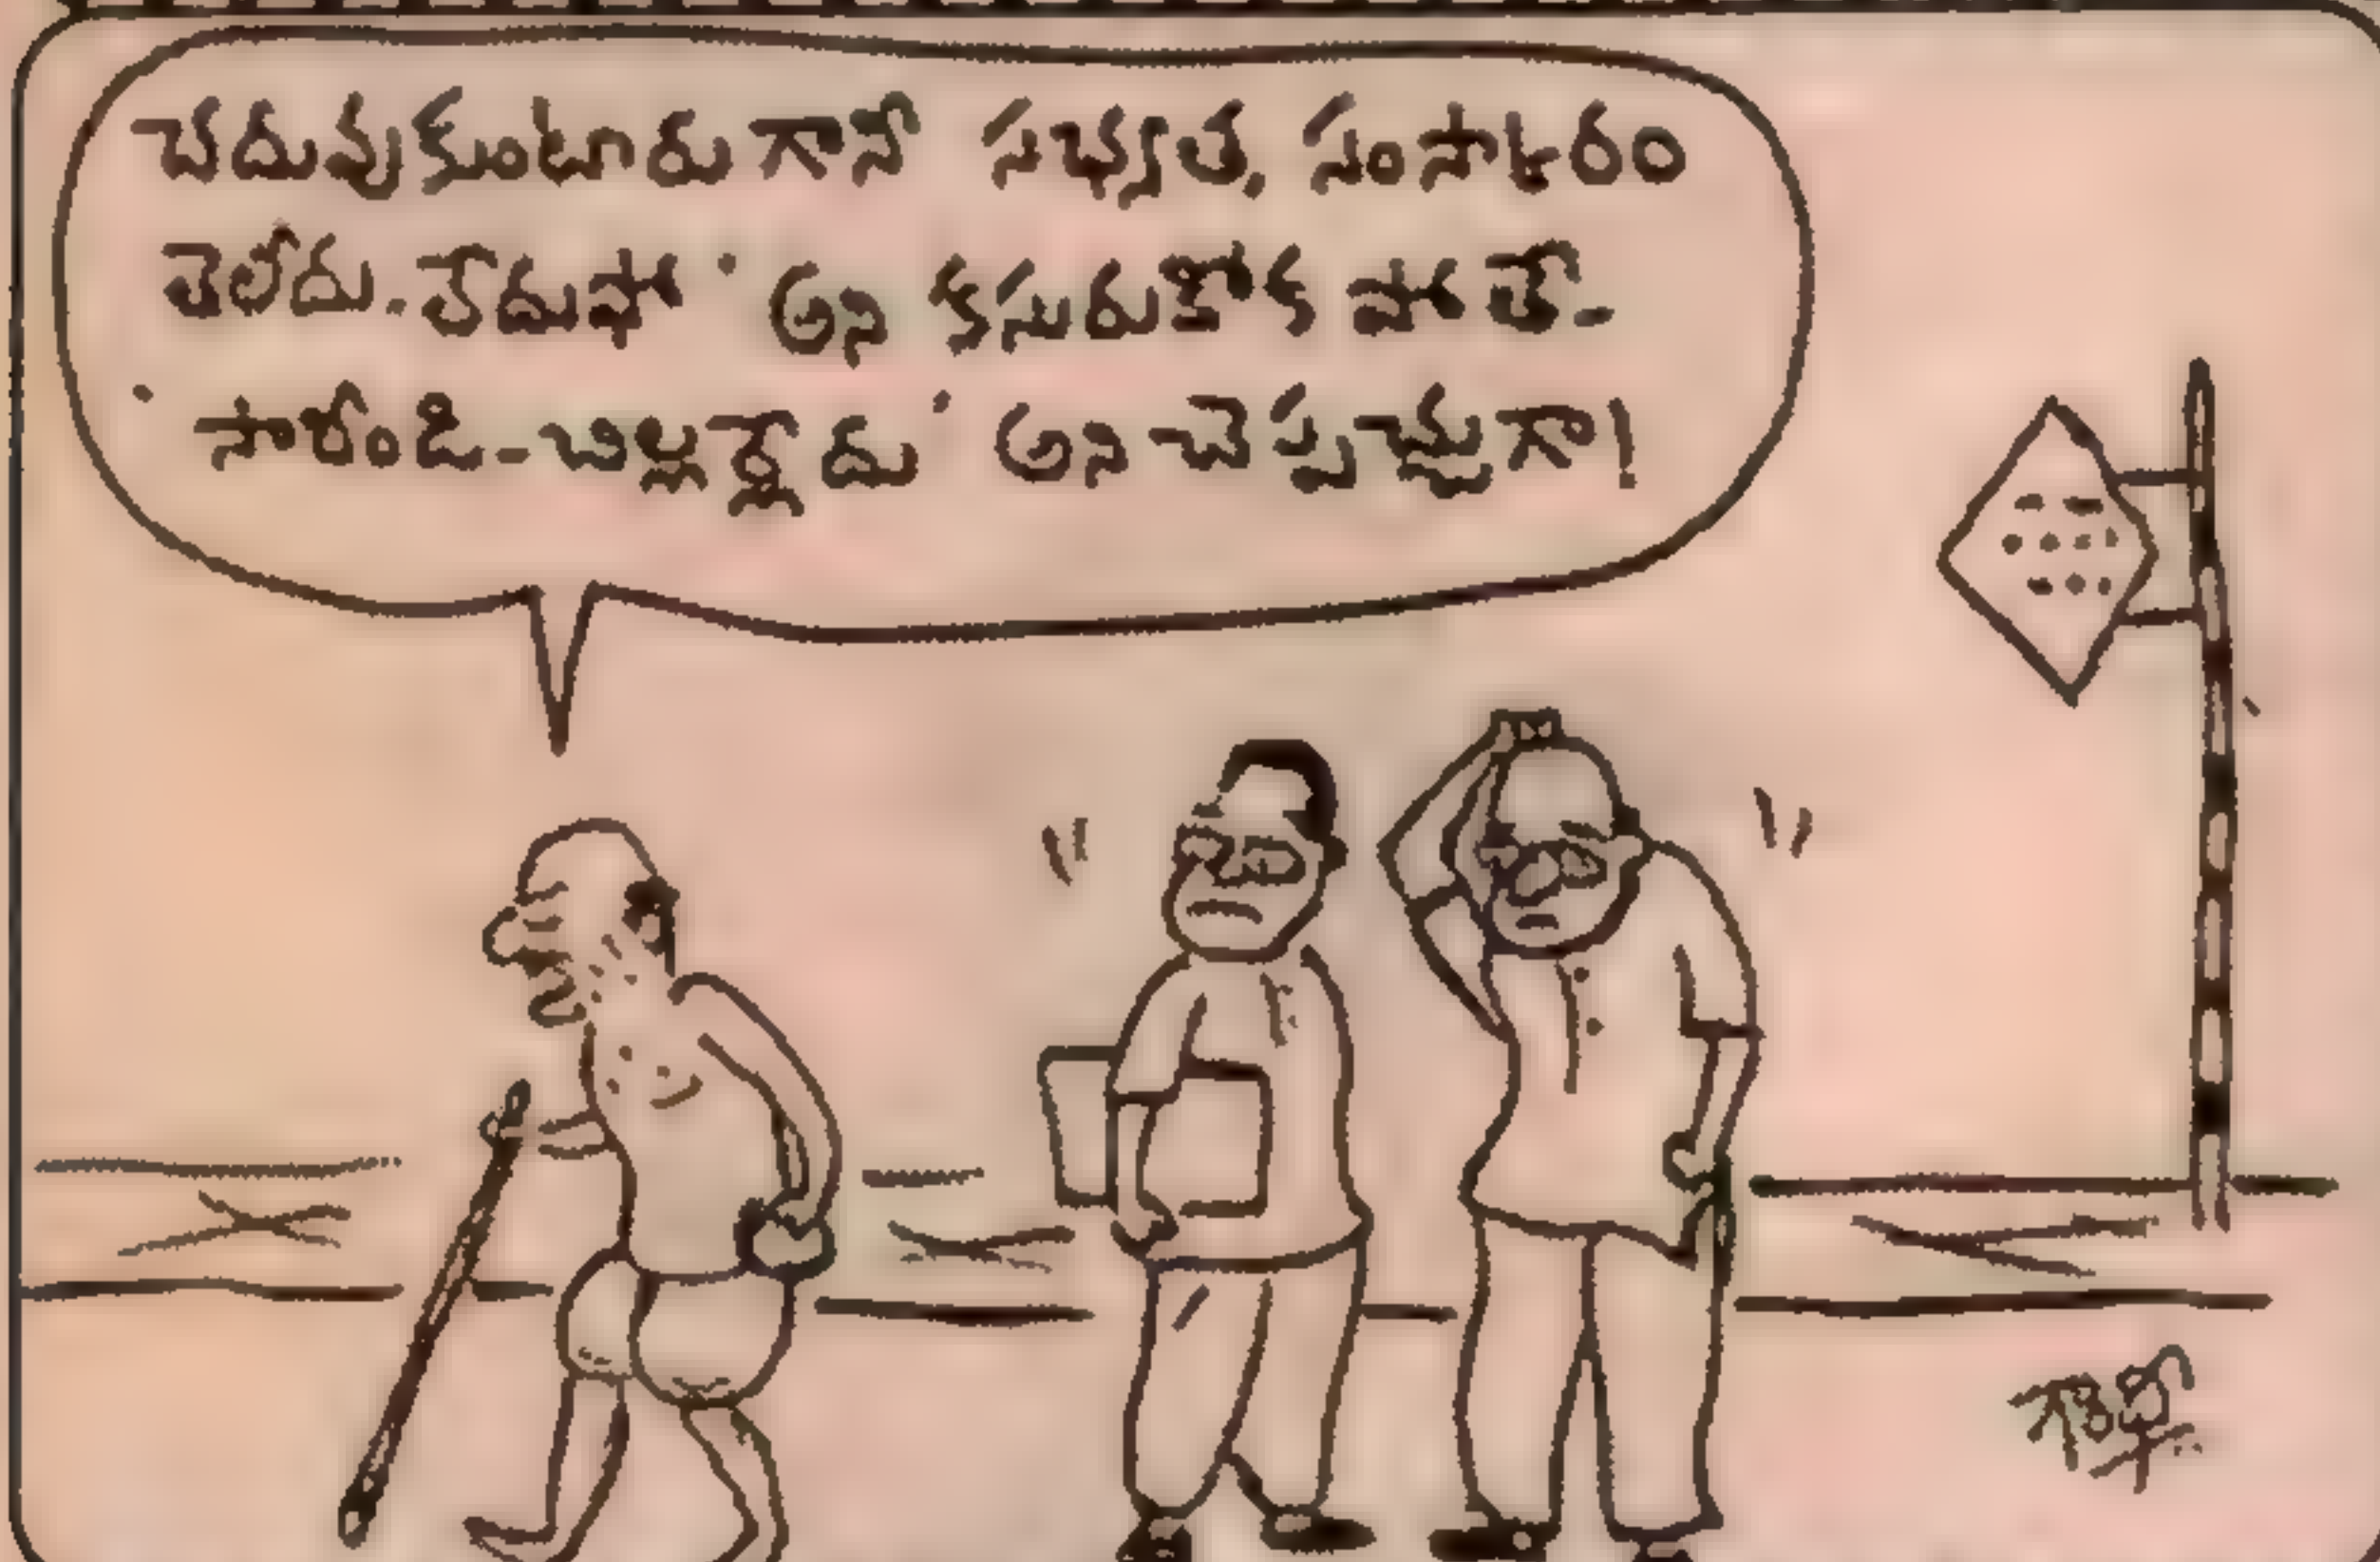 చదువుకుంటారుగానీ సభ్యత, సంస్కారం
తెలీదు. 'లేదుఫో' అని కసురుకోక పోతే-
'సారీండి-చిల్లర్లేదు' అని చెప్పచ్చుగా!